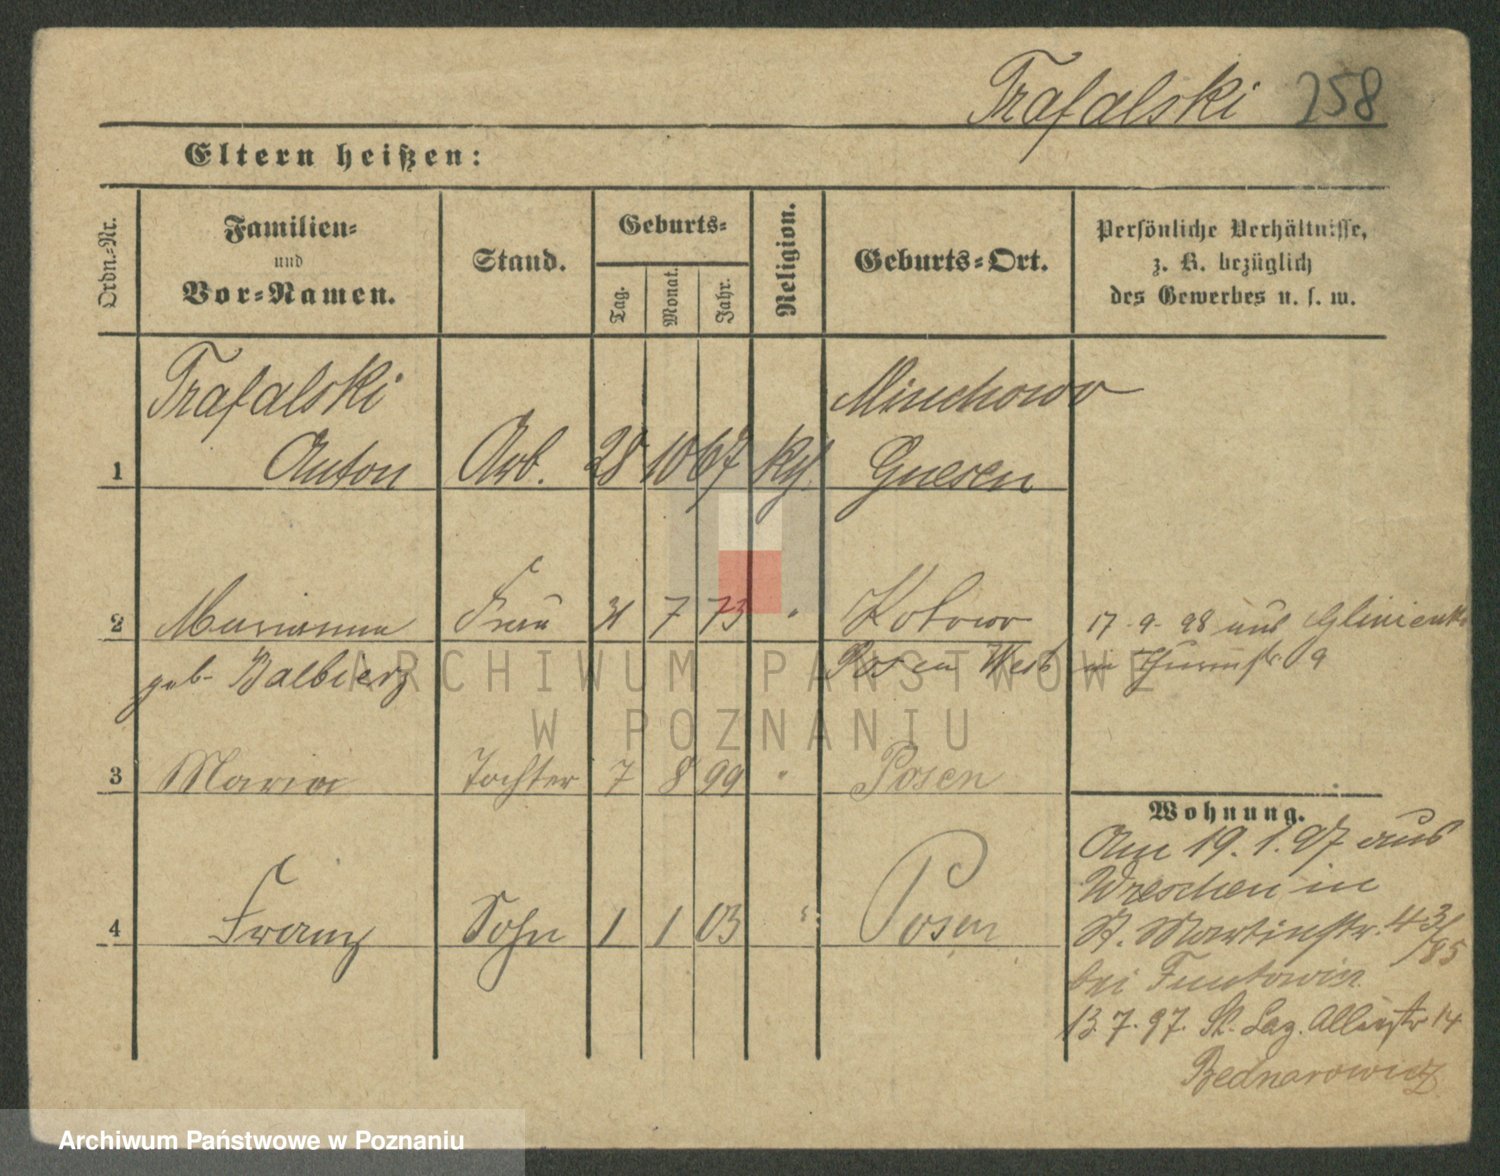 Trafalski 258
Eltern heißen:
Ordn.-Nr.
Familien-
und
Vor-Namen.
Stand.
Geburts-
Tag.
Monat.
Jahr.
Religion.
Geburts-Ort.
Persönliche Verhältnisse,
z. B. bezüglich
des Gewerbes u. s. w.
Trafalski Minchowo
1 Anton Arb. 28 10 67 kth. Gnesen
2 Marianna Frau 31 7 73 " Kotowo 17. 9. 98 aus
geb. Balbierz Posen West in Thurmstr. 9
3 Maria Tochter 7 8 99 " Posen
4 Franz Sohn 1 1 03 " Posen
Wohnung.
Am 19. 1. 97 aus
Wreschen in
St. Martinstr. 43/
/85
bei
13. 7. 97. St. Laz. 14
Bednarowicz
ARCHIWUM PAŃSTWOWE
W POZNANIU
Archiwum Państwowe w Poznaniu